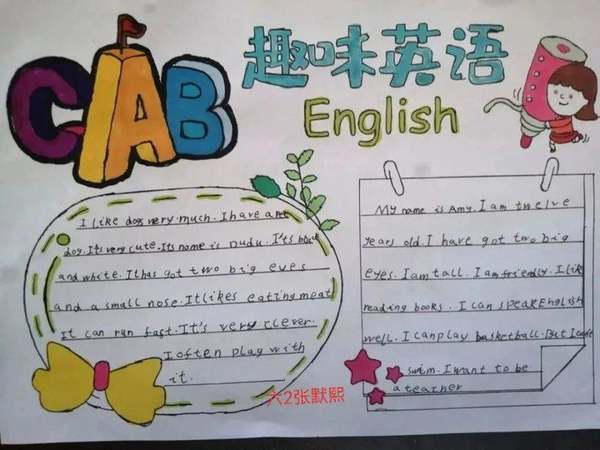 CAB
趣味英语
English
I like dog very much. I have a pet
dog. It's very cute. Its name is Dudu. It's black
and white. It has got two big eyes
and a small nose. It likes eating meat
It can run fast. It's very clever.
I often play with
it.
My name is Amy. I am twelve
years old. I have got two big
eyes. I am tall. I am friendly. I like
reading books. I can speak English
well. I can play basketball. But I can't
swim. I want to be
a teacher
六2张默熙